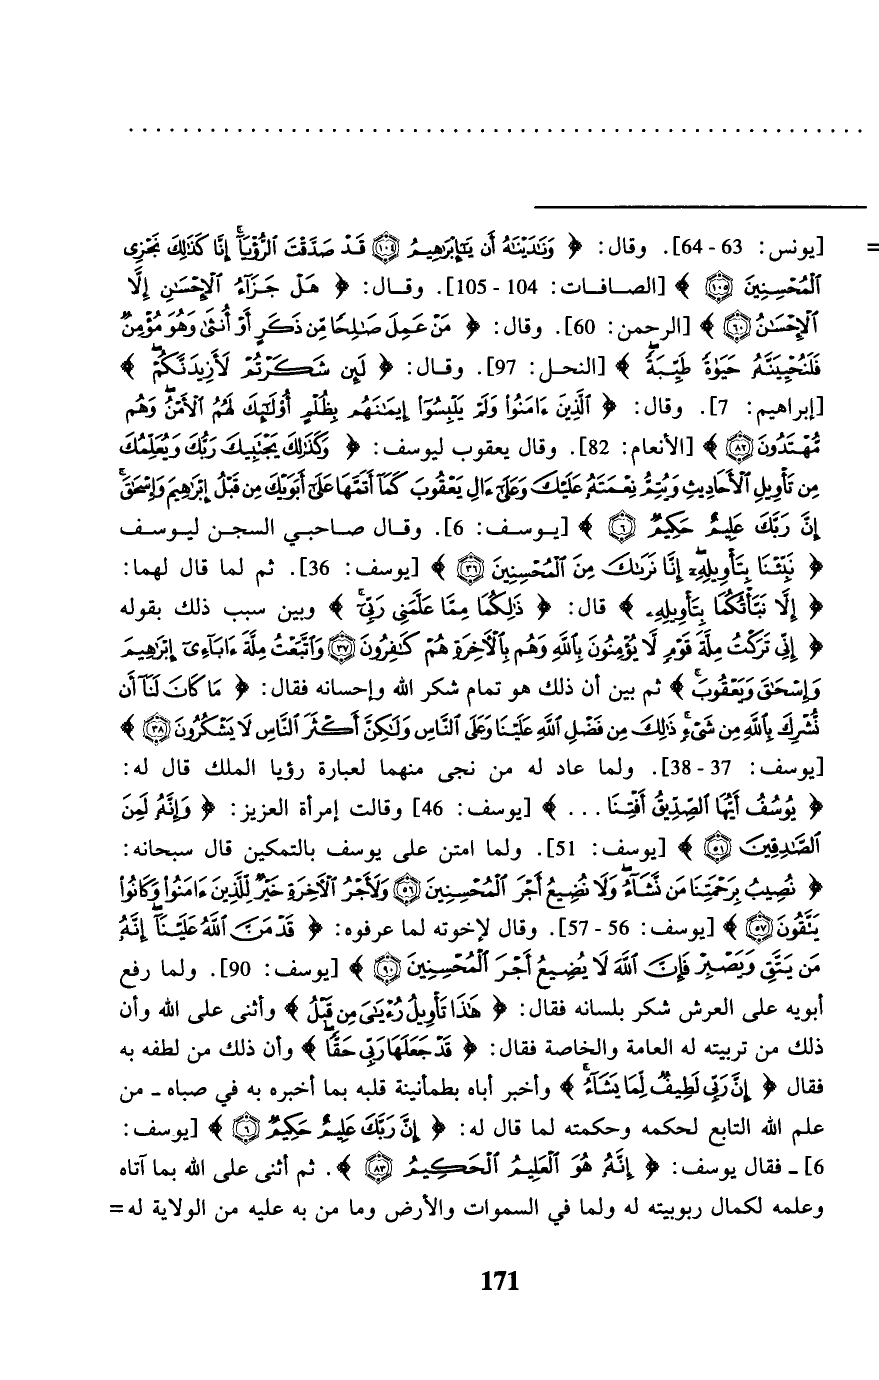 . . . . . . . . . . . . . . . . . . . . . . . . . . . . . . . . . . . . . . . . . . . . . . . . . . . . . .
= [يونس: 63 - 64]. وقال: ﴿ وَنَٰدَيْنَٰهُ أَن يَٰٓإِبْرَٰهِيمُ ١٠٤ قَدْ صَدَّقْتَ ٱلرُّؤْيَآ ۚ إِنَّا كَذَٰلِكَ نَجْزِى
ٱلْمُحْسِنِينَ ١٠٥ ﴾ [الصافات: 104 - 105]. وقال: ﴿ هَلْ جَزَآءُ ٱلْإِحْسَٰنِ إِلَّا
ٱلْإِحْسَٰنُ ٦٠ ﴾ [الرحمن: 60]. وقال: ﴿ مَنْ عَمِلَ صَٰلِحًا مِّن ذَكَرٍ أَوْ أُنثَىٰ وَهُوَ مُؤْمِنٌ
فَلَنُحْيِيَنَّهُۥ حَيَوٰةً طَيِّبَةً ۖ ﴾ [النحل: 97]. وقال: ﴿ لَئِن شَكَرْتُمْ لَأَزِيدَنَّكُمْ ۖ ﴾
[إبراهيم: 7]. وقال: ﴿ ٱلَّذِينَ ءَامَنُوا۟ وَلَمْ يَلْبِسُوٓا۟ إِيمَٰنَهُم بِظُلْمٍ أُو۟لَٰٓئِكَ لَهُمُ ٱلْأَمْنُ وَهُم
مُّهْتَدُونَ ٨٢ ﴾ [الأنعام: 82]. وقال يعقوب ليوسف: ﴿ وَكَذَٰلِكَ يَجْتَبِيكَ رَبُّكَ وَيُعَلِّمُكَ
مِن تَأْوِيلِ ٱلْأَحَادِيثِ وَيُتِمُّ نِعْمَتَهُۥ عَلَيْكَ وَعَلَىٰٓ ءَالِ يَعْقُوبَ كَمَآ أَتَمَّهَا عَلَىٰٓ أَبَوَيْكَ مِن قَبْلُ إِبْرَٰهِيمَ وَإِسْحَٰقَ ۚ
إِنَّ رَبَّكَ عَلِيمٌ حَكِيمٌ ٦ ﴾ [يوسف: 6]. وقال صاحبي السجن ليوسف
﴿ نَبِّئْنَا بِتَأْوِيلِهِۦٓ ۖ إِنَّا نَرَىٰكَ مِنَ ٱلْمُحْسِنِينَ ٣٦ ﴾ [يوسف: 36]. ثم لما قال لهما:
﴿ إِلَّا نَبَّأْتُكُمَا بِتَأْوِيلِهِۦ ﴾ قال: ﴿ ذَٰلِكُمَا مِمَّا عَلَّمَنِى رَبِّىٓ ۚ ﴾ وبين سبب ذلك بقوله
﴿ إِنِّى تَرَكْتُ مِلَّةَ قَوْمٍ لَّا يُؤْمِنُونَ بِٱللَّهِ وَهُم بِٱلْءَاخِرَةِ هُمْ كَٰفِرُونَ ٣٧ وَٱتَّبَعْتُ مِلَّةَ ءَابَآءِىٓ إِبْرَٰهِيمَ
وَإِسْحَٰقَ وَيَعْقُوبَ ۚ ﴾ ثم بين أن ذلك هو تمام شكر الله وإحسانه فقال: ﴿ مَا كَانَ لَنَآ أَن
نُّشْرِكَ بِٱللَّهِ مِن شَىْءٍ ۚ ذَٰلِكَ مِن فَضْلِ ٱللَّهِ عَلَيْنَا وَعَلَى ٱلنَّاسِ وَلَٰكِنَّ أَكْثَرَ ٱلنَّاسِ لَا يَشْكُرُونَ ٣٨ ﴾
[يوسف: 37 - 38]. ولما عاد له من نجى منهما لعبارة رؤيا الملك قال له:
﴿ يُوسُفُ أَيُّهَا ٱلصِّدِّيقُ أَفْتِنَا . . . ﴾ [يوسف: 46] وقالت إمرأة العزيز: ﴿ وَإِنَّهُۥ لَمِنَ
ٱلصَّٰدِقِينَ ٥١ ﴾ [يوسف: 51]. ولما امتن على يوسف بالتمكين قال سبحانه:
﴿ نُصِيبُ بِرَحْمَتِنَا مَن نَّشَآءُ ۖ وَلَا نُضِيعُ أَجْرَ ٱلْمُحْسِنِينَ ٥٦ وَلَأَجْرُ ٱلْءَاخِرَةِ خَيْرٌ لِّلَّذِينَ ءَامَنُوا۟ وَكَانُوا۟
يَتَّقُونَ ٥٧ ﴾ [يوسف: 56 - 57]. وقال لإخوته لما عرفوه: ﴿ قَدْ مَنَّ ٱللَّهُ عَلَيْنَآ ۖ إِنَّهُۥ
مَن يَتَّقِ وَيَصْبِرْ فَإِنَّ ٱللَّهَ لَا يُضِيعُ أَجْرَ ٱلْمُحْسِنِينَ ٩٠ ﴾ [يوسف: 90]. ولما رفع
أبويه على العرش شكر بلسانه فقال: ﴿ هَٰذَا تَأْوِيلُ رُءْيَٰىَ مِن قَبْلُ ﴾ وأثنى على الله وأن
ذلك من تربيته له العامة والخاصة فقال: ﴿ قَدْ جَعَلَهَا رَبِّى حَقًّا ۖ ﴾ وأن ذلك من لطفه به
فقال ﴿ إِنَّ رَبِّى لَطِيفٌ لِّمَا يَشَآءُ ۚ ﴾ وأخبر أباه بطمأنينة قلبه بما أخبره به في صباه ـ من
علم الله التابع لحكمه وحكمته لما قال له: ﴿ إِنَّ رَبَّكَ عَلِيمٌ حَكِيمٌ ٦ ﴾ [يوسف:
6] ـ فقال يوسف: ﴿ إِنَّهُۥ هُوَ ٱلْعَلِيمُ ٱلْحَكِيمُ ٨٣ ﴾. ثم أثنى على الله بما آتاه
وعلمه لكمال ربوبيته له ولما في السموات والأرض وما من به عليه من الولاية له =
171